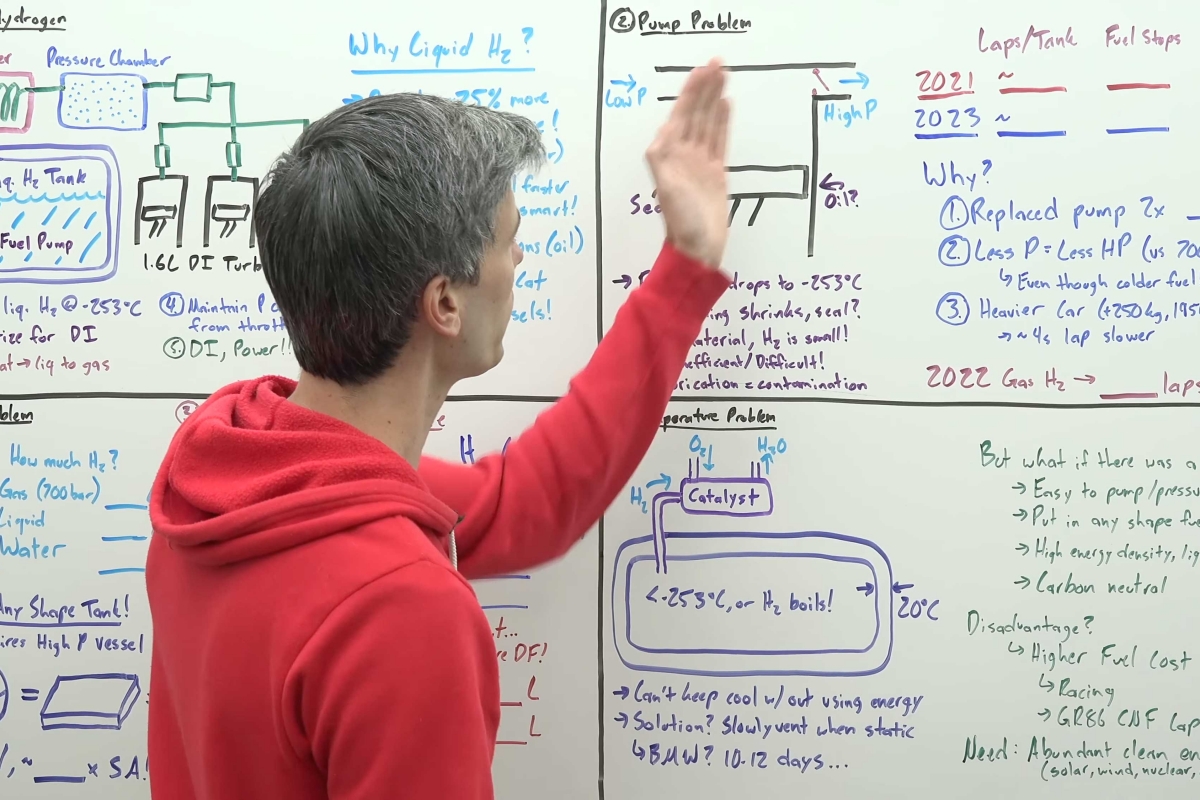 Hydrogen
Pressure Chamber
Liq. H₂ Tank
Fuel Pump
1.6L DI Turb
liq. H₂ @ -253°C
rize for DI
at → liq to gas
④ Maintain P
from thrott
⑤ DI, Power!!
Why Liquid H₂?
25% more
faster
smart!
(oil)
② Pump Problem
Low P
High P
Oil?
drops to -253°C
shrinks, seal?
material, H₂ is small!
Inefficient/Difficult!
= contamination
Laps/Tank Fuel Stops
2021 ~
2023 ~
Why?
① Replaced pump 2x
② Less P = Less HP (vs 700
↳ Even though colder fuel
③ Heavier Car (+250kg, 195
→ ~4s lap slower
2022 Gas H₂ → ____ laps
Problem
How much H₂?
Gas (700bar)
Liquid
Water
Any Shape Tank!
ires High P vessel
=
%, ~ ____ x SA!
re DF!
L
L
Temperature Problem
O₂
H₂O
H₂
Catalyst
<-253°C, or H₂ boils!
20°C
→ Can't keep cool w/out using energy
→ Solution? Slowly vent when static
↳ BMW? 10-12 days...
But what if there was a
→ Easy to pump/pressu
→ Put in any shape fu
→ High energy density, liq
→ Carbon neutral
Disadvantage?
↳ Higher Fuel Cost
↳ Racing
→ GR86 CNF Lap
Need: Abundant clean en
(solar, wind, nuclear,